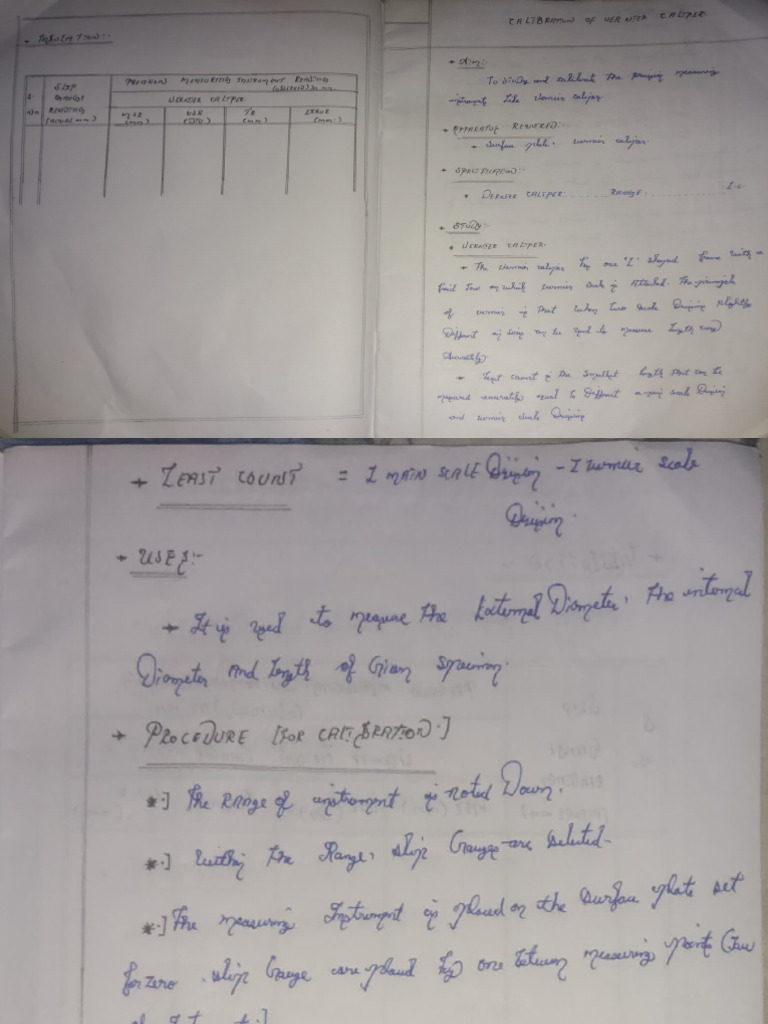 TABULATION:-
S.NO
SLIP GAUGE READING (actual mm)
PRECISION MEASURING INSTRUMENT READING (observed) in mm.
VERNIER CALIPER
MSR (mm)
VSR (DIV)
TR (mm)
ERROR (mm)
CALIBRATION OF VERNIER CALIPER
AIM:-
To study and calibrate the measuring
instrument like vernier caliper
APPARATUS REQUIRED:-
Surface plate, vernier caliper
SPECIFICATION:-
VERNIER CALIPER RANGE L.C
STUDY:-
VERNIER CALIPER:
The vernier caliper has one 'L' shaped frame with a
on which vernier scale is attached. The principle
of vernier is that when two scale Division slightly
Different in size can be used to measure length
Accurately
Least count is the smallest length that can be
measured accurately equal to different main scale Division
and vernier scale Division
LEAST COUNT = 1 MAIN SCALE Division - 1 vernier scale
Division.
USES:-
It is used to measure the External Diameter, the internal
Diameter And Length of Given specimen.
PROCEDURE [FOR CALIBRATION.]
*.] The RANGE of instrument is noted Down.
*.] Within the Range, slip Gauges are selected.
*.] The measuring Instrument is placed on the surface plate set
for zero. slip Gauge are placed by one between measuring points